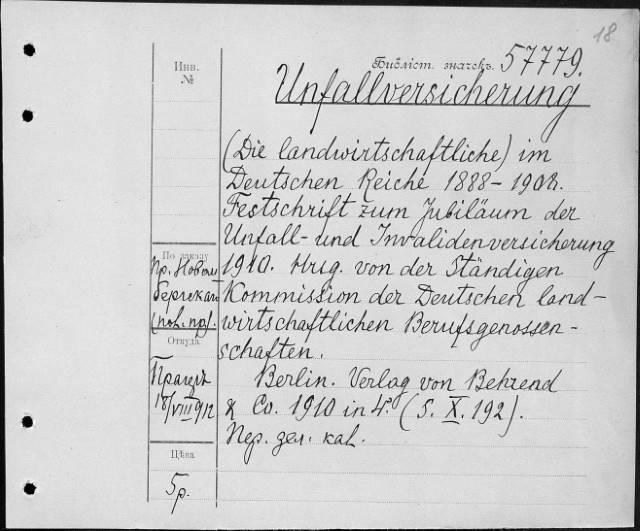 18
Библіот. значекъ. 57779.
Инв.
№
Unfallversicherung
(Die landwirtschaftliche) im
Deutschen Reiche 1888-1908.
Festschrift zum Jubiläum der
Unfall- und Invalidenversicherung
1910. Hrsg. von der Ständigen
Kommission der Deutschen land-
wirtschaftlichen Berufsgenossen-
schaften.
Berlin. Verlag von Behrend
& Co. 1910 in 4°. (S. X. 192).
Пер. зел. кал.
По заказу
Пр.
Откуда
Прагеръ
18/VIII 912
Цѣна
5р.